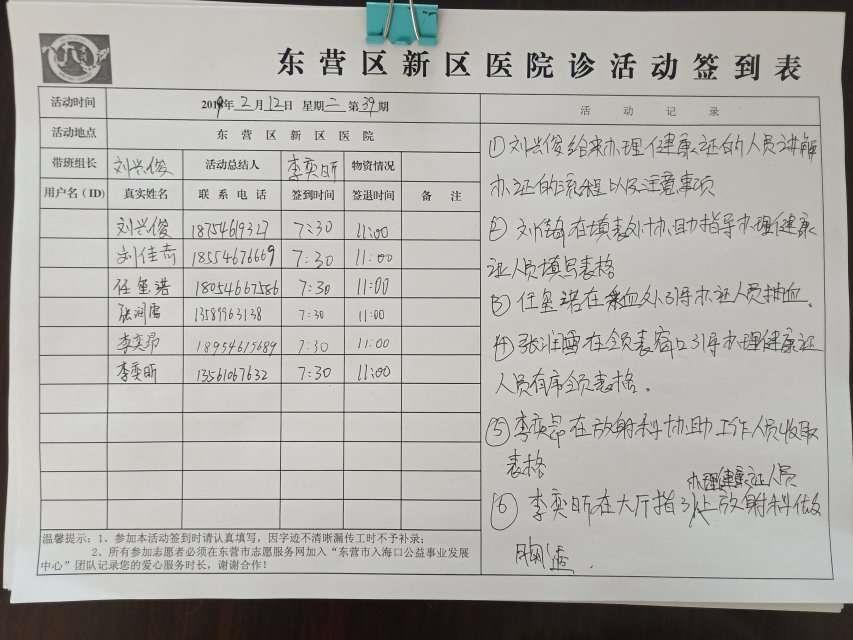 东营区新区医院诊活动签到表
活动时间 2019年2月12日 星期二 第39期
活动地点 东营区新区医院
带班组长 刘兴俊 活动总结人 李奕昕 物资情况
用户名(ID) 真实姓名 联系电话 签到时间 签退时间 备注
刘兴俊 18754619327 7:30 11:00
刘佳奇 18554676669 7:30 11:00
任玺诺 18054667586 7:30 11:00
张润雨 13589963138 7:30 11:00
李奕昂 18954615689 7:30 11:00
李奕昕 13561067632 7:30 11:00
温馨提示:1、参加本活动签到时请认真填写,因字迹不清晰漏传工时不予补录;
2、所有参加志愿者必须在东营市志愿服务网加入“东营市入海口公益事业发展
中心”团队记录您的爱心服务时长,谢谢合作!
活动记录
①刘兴俊给来办理健康证的人员讲解
办证的流程以及注意事项
② 刘佳奇在填表处协助指导办理健康
证人员填写表格
③ 任玺诺在采血处引导办证人员抽血.
④ 张润雨在领表窗口引导办理健康证
人员有序领表格.
⑤ 李奕昂在放射科协助工作人员收取
表格
⑥ 李奕昕在大厅指引办理健康证人员上放射科做
胸透.